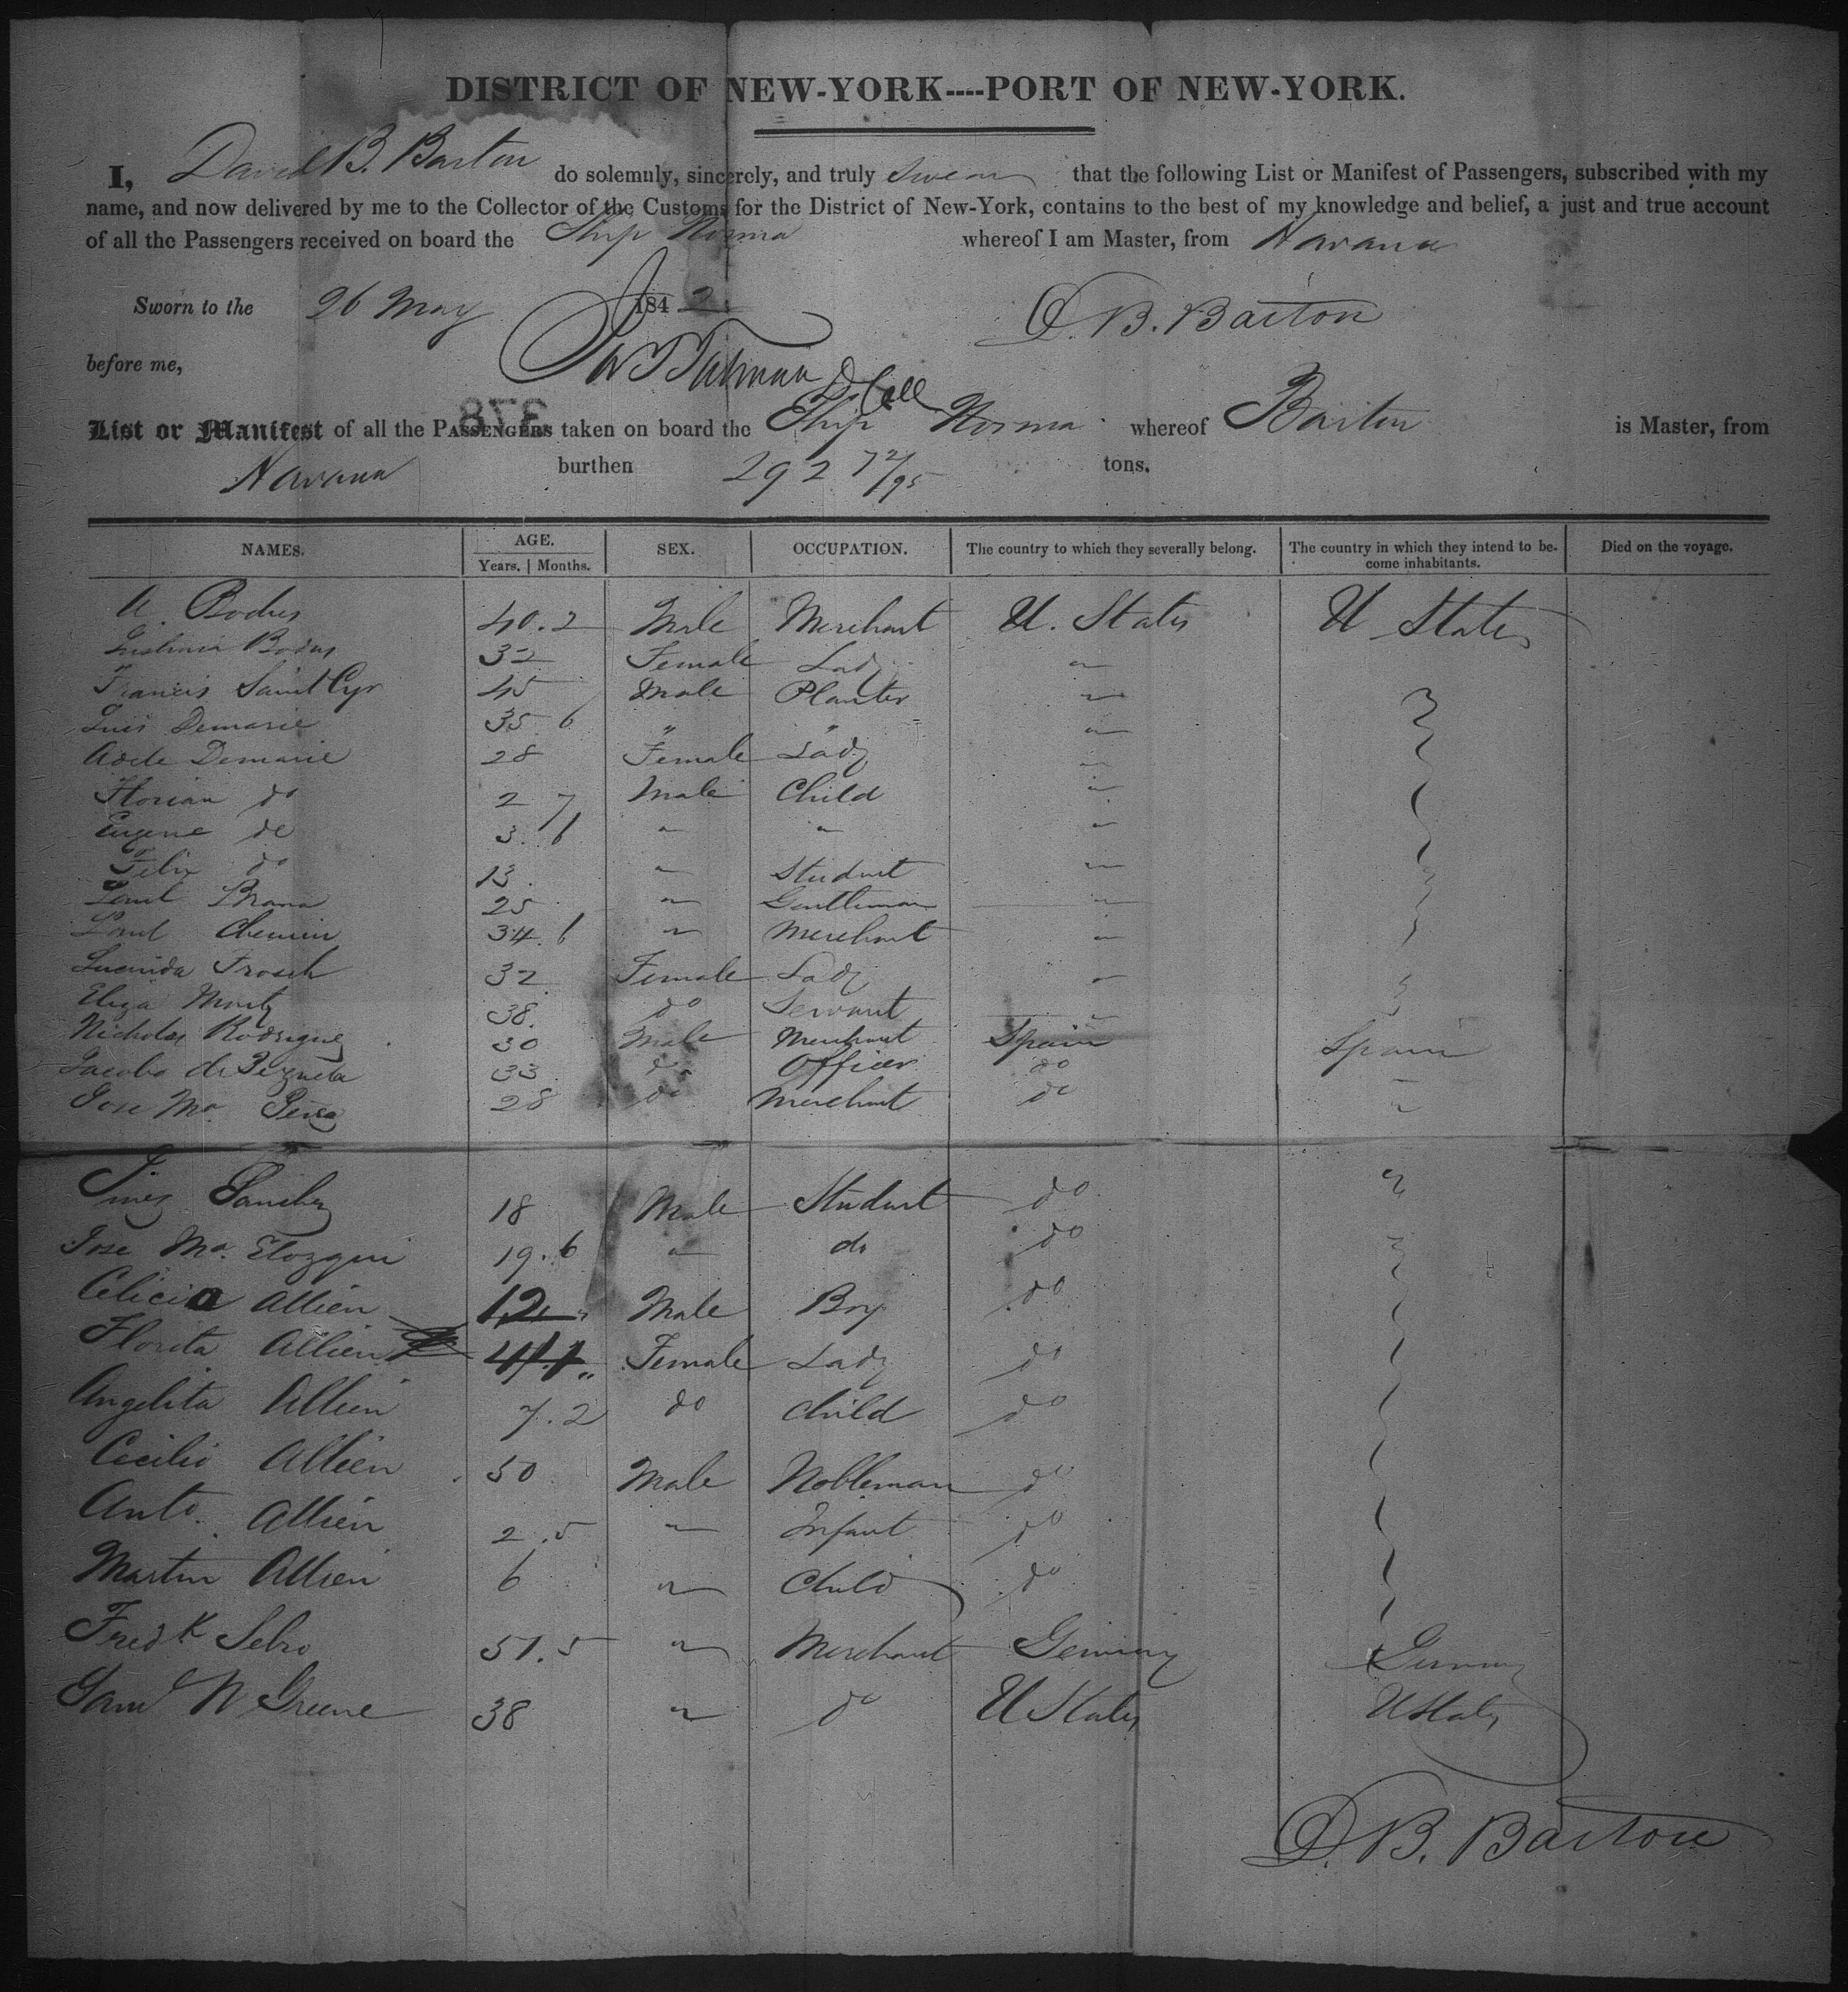 DISTRICT OF NEW-YORK----PORT OF NEW-YORK.
I, David B. Barton do solemnly, sincerely, and truly swear that the following List or Manifest of Passengers, subscribed with my
name, and now delivered by me to the Collector of the Customs for the District of New-York, contains to the best of my knowledge and belief, a just and true account
of all the Passengers received on board the Ship Norma whereof I am Master, from Havana
Sworn to the 26 May 1842 D. B. Barton
before me, D Coll
List or Manifest of all the PASSENGERS taken on board the Ship Norma whereof Barton is Master, from
Havana burthen 292 72/95 tons.
NAMES. AGE. SEX. OCCUPATION. The country to which they severally belong. The country in which they intend to be- Died on the voyage.
Years. | Months. come inhabitants.
A. Bodus 40.2 Male Merchant U. States U States
Bodus 32 Female Lady "
Francis Saint Cyr 45 Male Planter "
Luis Demarie 35.6 " " "
Adele Demarie 28 Female Lady "
Florian do 2 7 Male Child "
Eugene do 3.6 " " "
Felix do 13 " Student "
Paul 25 " Gentleman "
Paul Chemin 34.6 " Merchant "
Lucinda Frosch 32 Female Lady "
Eliza 38. do Servant "
Nicholas Rodrigue 30 Male Merchant Spain Spain
Jacobo de Pezuela 33 do Officer do "
Jose Ma. 28 do Merchant do "
Sanchez 18 Male Student do "
Jose Ma. 19.6 " do do
Alicia Allien 12 " Male Boy do
Florita Allien Female Lady do
Angelita Allien 7.2 do Child do
Cecilio Allien 50 Male Nobleman do
Anto. Allien 2.5 " Infant do
Martin Allien 6 " Child do
Fredk 51.5 " Merchant Germany Germany
Saml N Greene 38 " do U States U States
D. B. Barton